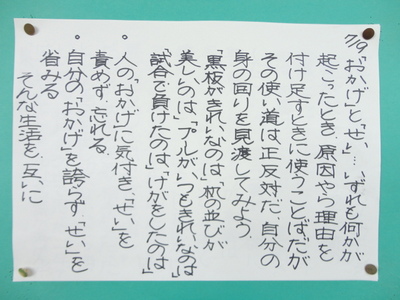 7/9「おかげ」と「せい」… いずれも何かが
起こったとき、原因やら理由を
付け足すときに使うことばだが
その使い道は正反対だ。自分の
身の回りを見渡してみよう。
「黒板がきれいなのは」「机の並びが
美しいのは」「プールがいつもきれいなのは」
「試合で負けたのは」「けがをしたのは」
• 人の「おかげ」に気付き、「せい」を
責めず、忘れる
• 自分の「おかげ」を誇らず「せい」を
省みる
そんな生活を、互いに